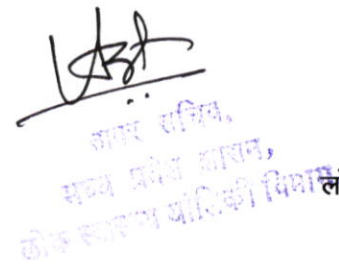 अवर सचिव,
मध्य प्रदेश शासन,
लोक स्वास्थ्य यांत्रिकी विभाग